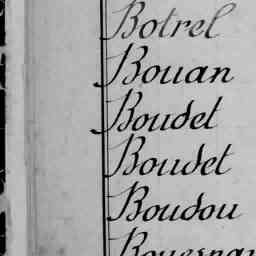 Botrel
Bouan
Boudet
Boudet
Boudou